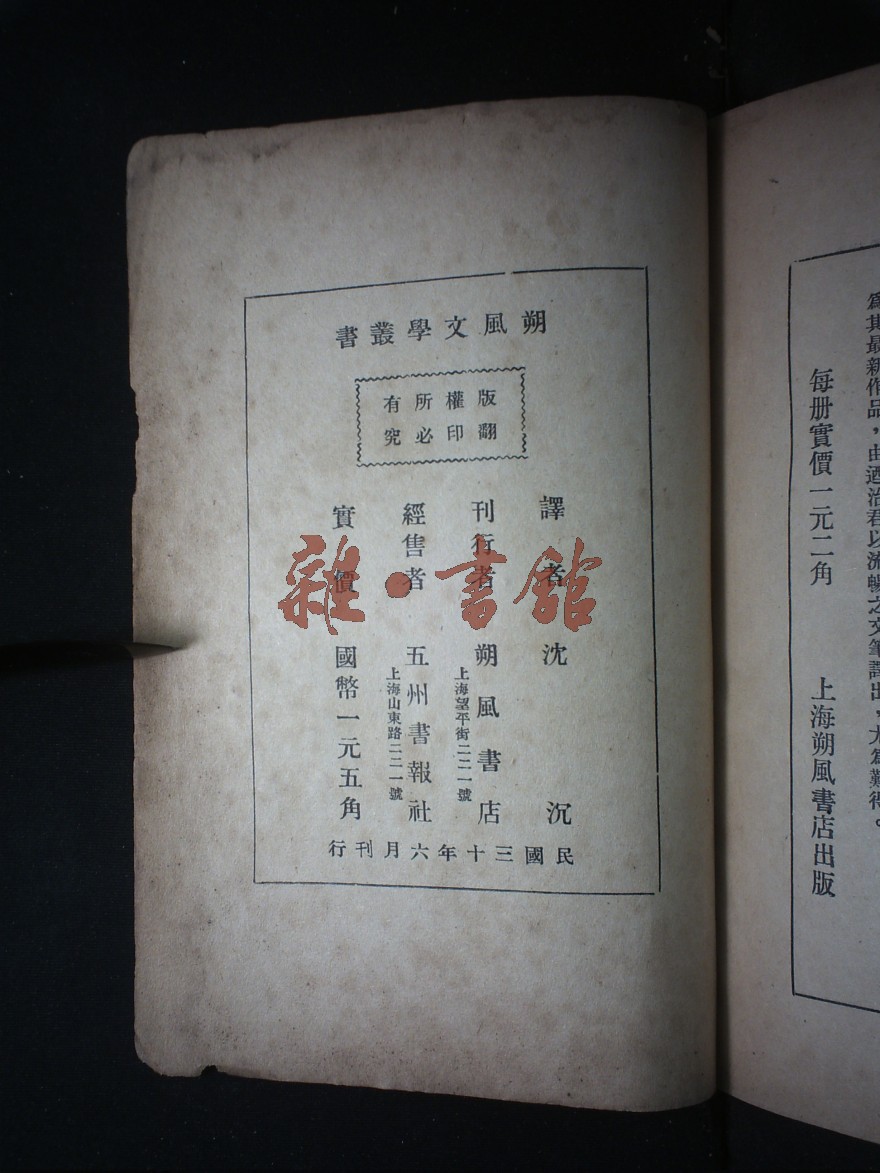 爲其最新作品，由迺治君以流暢之文筆譯出，尤爲難得。
每册實價一元二角　上海朔風書店出版
朔風文學叢書
版權所有
翻印必究
譯者　沈沉
刊行者　朔風書店
上海望平街二二一號
經售者　五州書報社
上海山東路二二一號
實價　國幣一元五角
民國三十年六月刊行
雜·書館